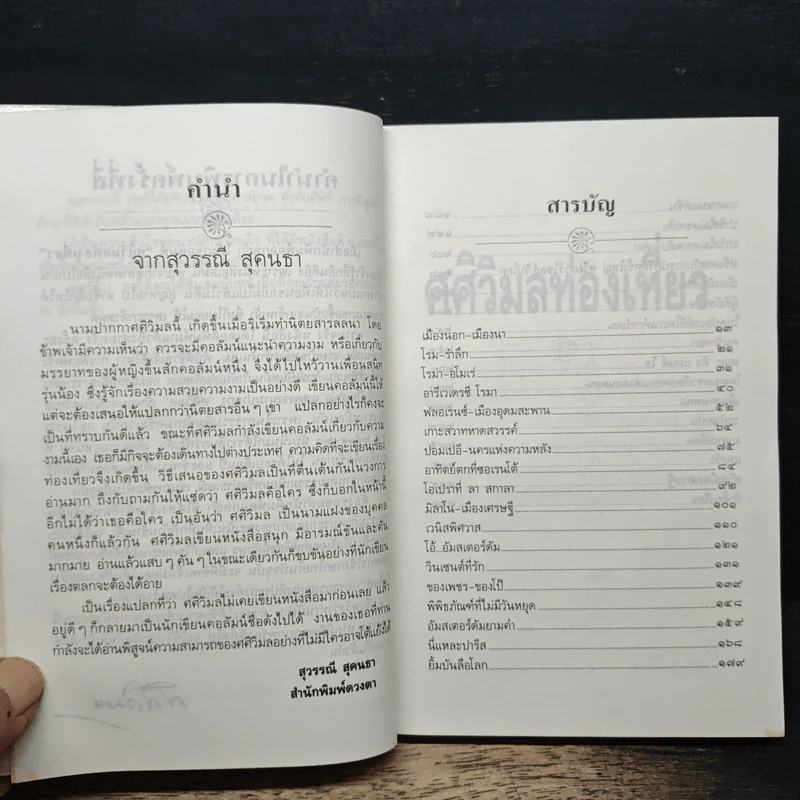 คำนำ
จากสุวรรณี สุคนธา
นามปากกาศศิวิมลนี้ เกิดขึ้นเมื่อริเริ่มทำนิตยสารลลนา โดย
ข้าพเจ้ามีความเห็นว่า ควรจะมีคอลัมน์แนะนำความงาม หรือเกี่ยวกับ
มรรยาทของผู้หญิงขึ้นสักคอลัมน์หนึ่ง จึงได้ไปไหว้วานเพื่อนสนิท
รุ่นน้อง ซึ่งรู้จักเรื่องความสวยความงามเป็นอย่างดี เขียนคอลัมน์นี้ให้
แต่จะต้องเสนอให้แปลกกว่านิตยสารอื่นๆ เขา แปลกอย่างไรก็คงจะ
เป็นที่ทราบกันดีแล้ว ขณะที่ศศิวิมลกำลังเขียนคอลัมน์เกี่ยวกับความ
งามนี้เอง เธอก็มีกิจจะต้องเดินทางไปต่างประเทศ ความคิดที่จะเขียนเรื่อง
ท่องเที่ยวจึงเกิดขึ้น วิธีเสนอของศศิวิมลเป็นที่ตื่นเต้นกันในวงการ
อ่านมาก ถึงกับถามกันให้แซ่ดว่า ศศิวิมลคือใคร ซึ่งก็บอกในหน้านี้
อีกไม่ได้ว่าเธอคือใคร เป็นอันว่า ศศิวิมล เป็นนามแฝงของบุคคล
คนหนึ่งก็แล้วกัน ศศิวิมลเขียนหนังสือสนุก มีอารมณ์ขันและคัน
มากมาย อ่านแล้วแสบๆ คันๆ ในขณะเดียวกันก็ขบขันอย่างที่นักเขียน
เรื่องตลกจะต้องได้อาย
เป็นเรื่องแปลกที่ว่า ศศิวิมลไม่เคยเขียนหนังสือมาก่อนเลย แล้ว
อยู่ดีๆ ก็กลายมาเป็นนักเขียนคอลัมน์ชื่อดังไปได้ งานของเธอที่ท่าน
กำลังจะได้อ่านพิสูจน์ความสามารถของศศิวิมลอย่างที่ไม่มีใครอาจโต้แย้งได้
สุวรรณี สุคนธา
สำนักพิมพ์ดวงตา
สารบัญ
เมืองนอก-เมืองนา ๑๓
โรม-รำลึก ๒๑
โรม่า-อิโมเร่ ๓๑
อารีเวเดรซี โรมา ๔๐
ฟลอเรนซ์-เมืองอุดมสะพาน ๕๒
เกาะสวาทหาดสวรรค์ ๖๔
ปอมเปอี-นครแห่งความหลัง ๗๕
อาทิตย์ตกที่ซอเรนโต้ ๘๔
โอเปร่าที่ ลา สกาลา ๙๒
มิลาโน-เมืองเศรษฐี ๑๐๑
เวนิสพิศวาส ๑๑๐
โอ้..อัมสเตอร์ดัม ๑๒๑
วินเซนต์ที่รัก ๑๓๑
ของเพชร-ของโป๊ ๑๓๙
พิพิธภัณฑ์ที่ไม่มีวันหยุด ๑๔๘
อัมสเตอร์ดัมยามค่ำ ๑๕๙
นี่แหละปารีส ๑๖๘
ยิ้มบันลือโลก ๑๗๙